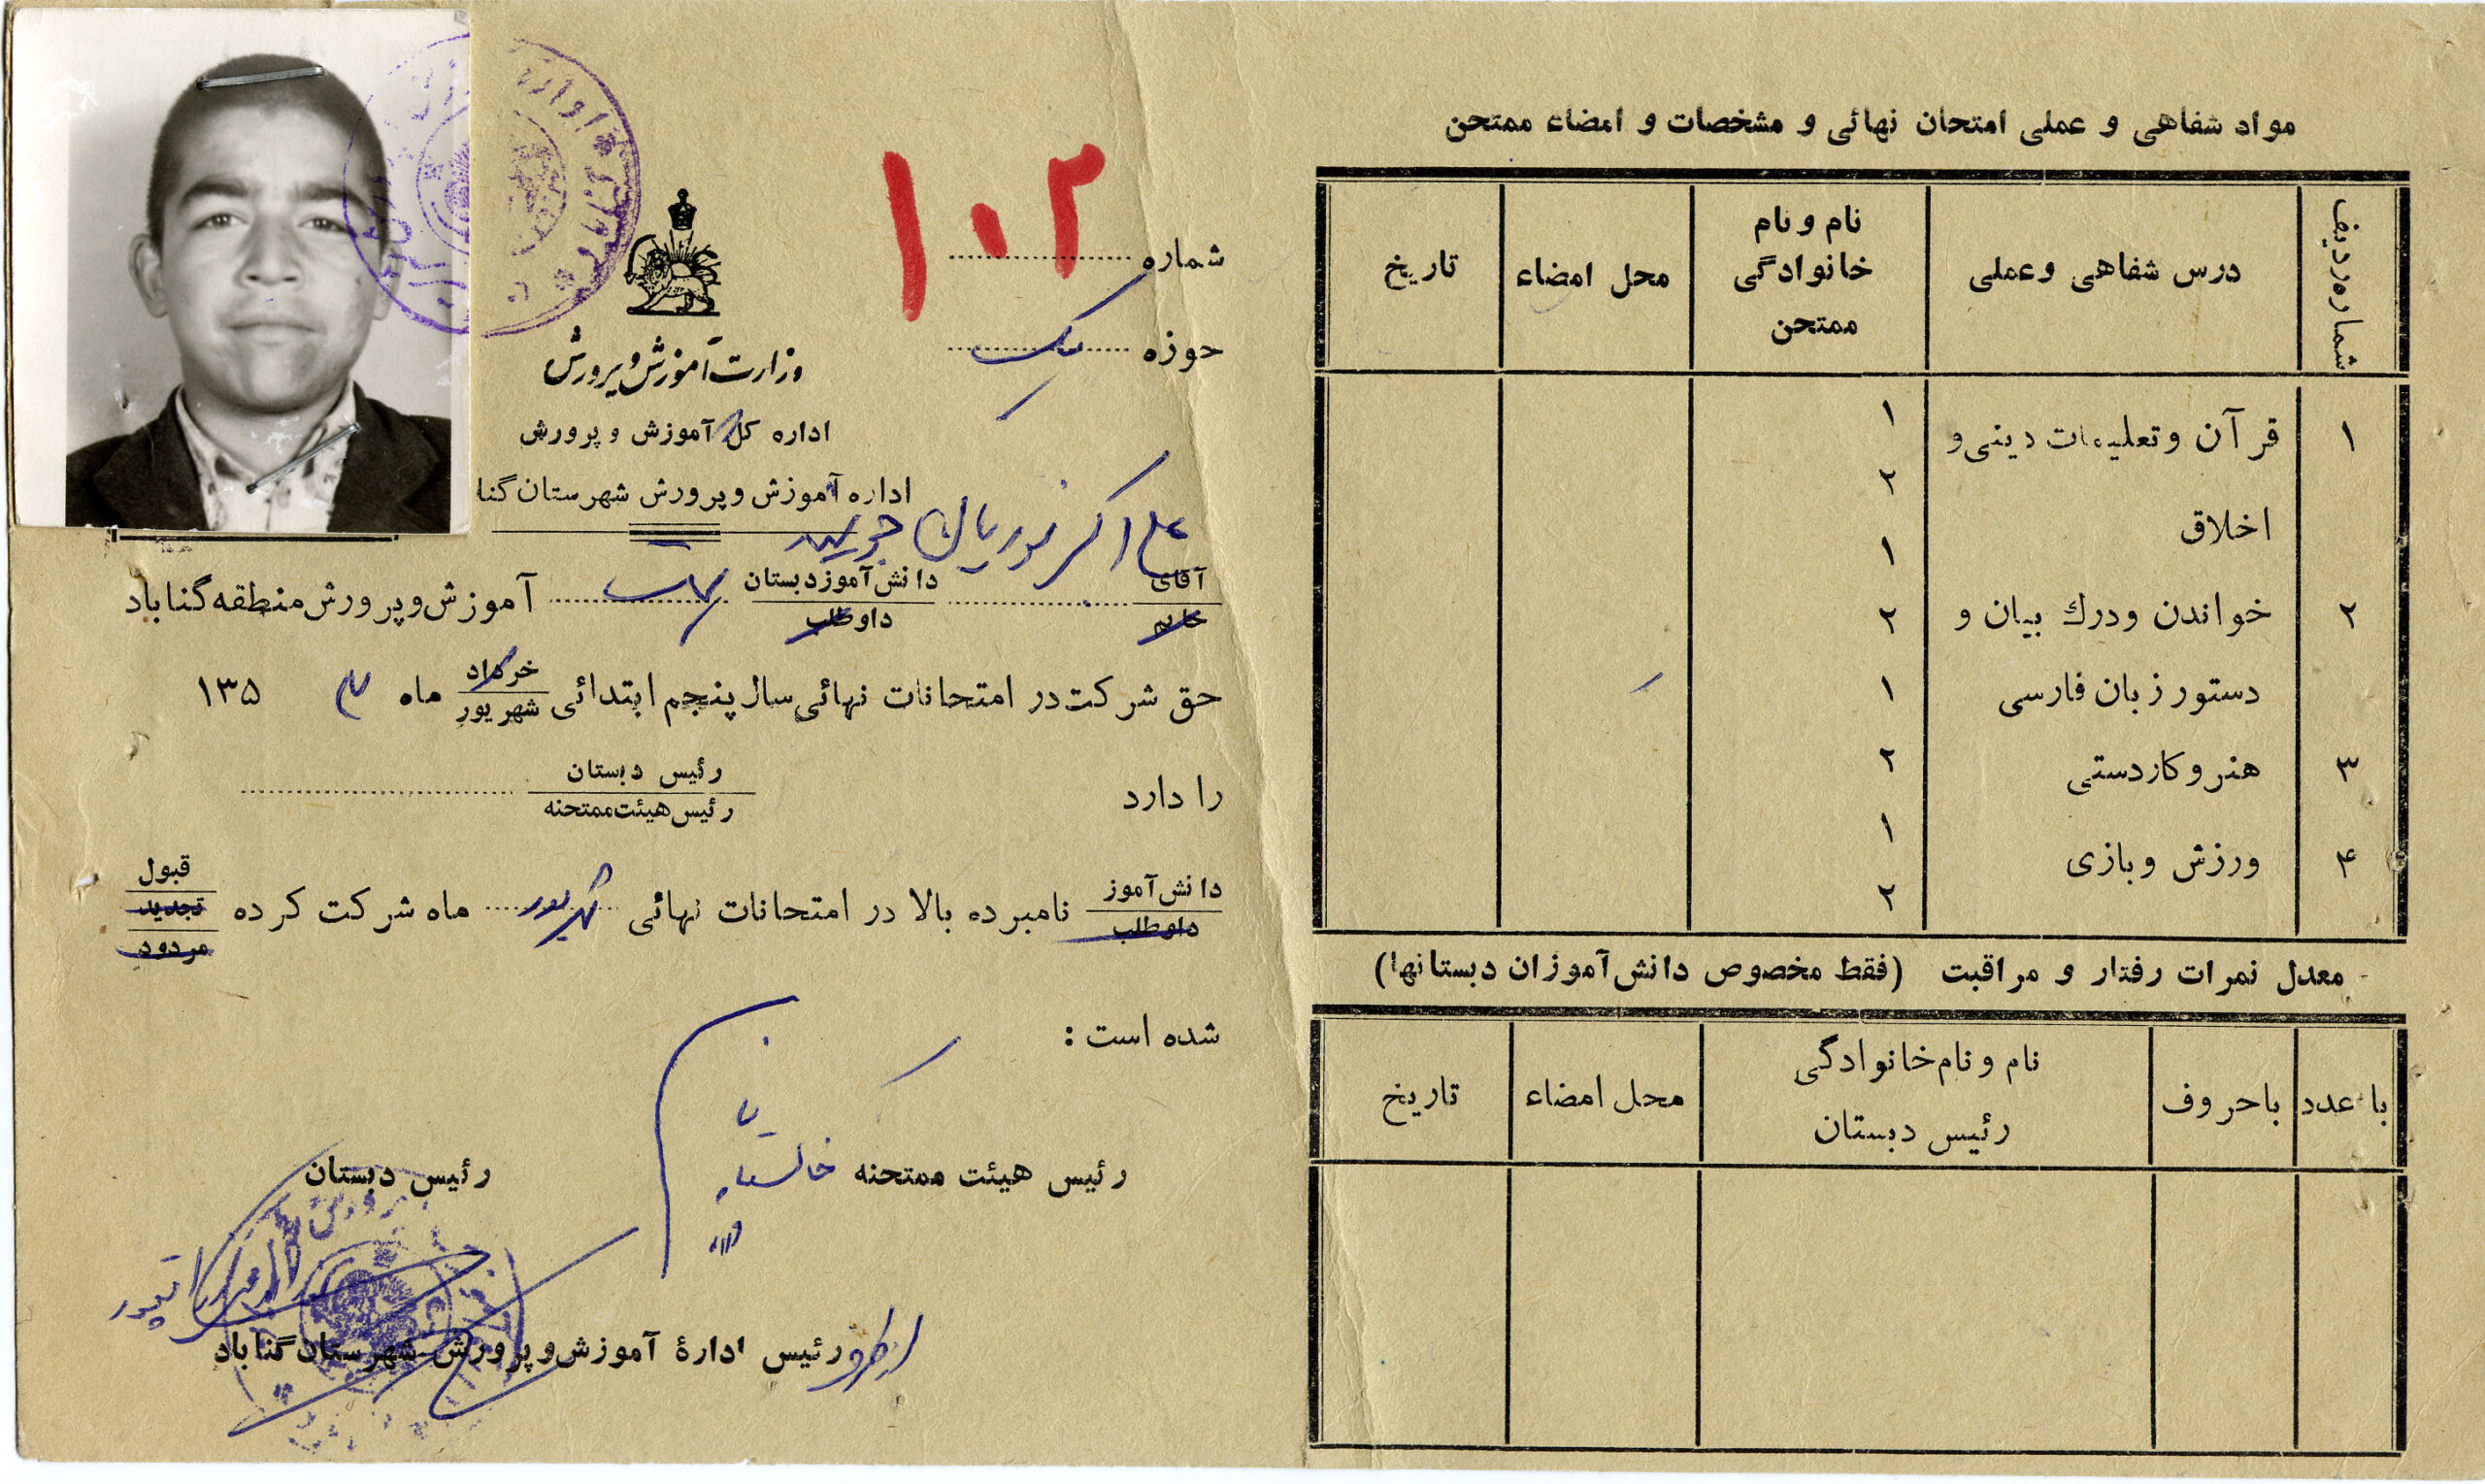 مواد شفاهی و عملی امتحان نهائی و مشخصات و امضاء ممتحن
شماره ردیف
درس شفاهی و عملی
نام و نام خانوادگی ممتحن
محل امضاء
تاریخ
۱ قرآن و تعلیمات دینی و ۱
۲
اخلاق
۱
۲ خواندن و درك بیان و ۲
دستور زبان فارسی ۱
۳ هنر و کاردستی ۲
۱
۴ ورزش و بازی
۲
معدل نمرات رفتار و مراقبت (فقط مخصوص دانش آموزان دبستانها)
با عدد
باحروف
نام و نام خانوادگی
رئیس دبستان
محل امضاء
تاریخ
۱۰۲
شماره
حوزه
وزارت آموزش و پرورش
اداره کل آموزش و پرورش
اداره آموزش و پرورش شهرستان گنا
علی اکبر نوریان
آقای
خانم
دانش آموز دبستان
داوطلب
آموزش و پرورش منطقه گناباد
حق شرکت در امتحانات نهائی سال پنجم ابتدائی
خرداد
شهریور
ماه ۱۳۵
را دارد
رئیس دبستان
رئیس هیئت ممتحنه
دانش آموز
داوطلب
نامبرده بالا در امتحانات نهائی شهریور ماه شرکت کرده
قبول
تجدید
مردود
شده است :
رئیس هیئت ممتحنه
رئیس دبستان
رئیس ادارۀ آموزش و پرورش شهرستان گناباد